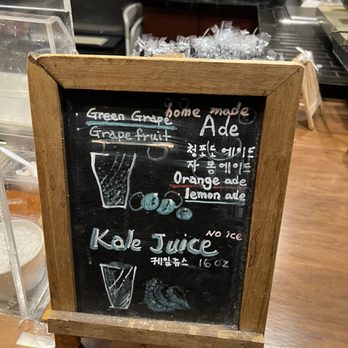 home made
Green Grape
Ade
Grape fruit
청포도 에이드
자몽 에이드
Orange ade
lemon ade
Kale Juice
NO ICE
케일쥬스 16 oz